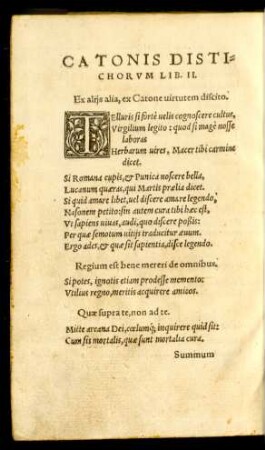 CATONIS DISTI-
CHORVM LIB. II.
Ex alijs alia, ex Catone uirtutem discito.
TElluris si fortè uelis cognoscere cultus,
Virgilium legito: quod si magè nosse
laboras
Herbarum uires, Macer tibi carmine
dicet.
Si Romana cupis, & Punica noscere bella,
Lucanum quæras, qui Martis prælia dicet.
Si quid amare libet, uel discere amare legendo,
Nasonem petito: sin autem cura tibi hæc est,
Vt sapiens uiuas, audi, quo discere possis:
Per quæ semotum uitijs traducitur æuum.
Ergo ades, & quæ sit sapientia, disce legendo.
Regium est bene mereri de omnibus.
Si potes, ignotis etiam prodesse memento:
Vtilius regno, meritis acquirere amicos.
Quæ supra te, non ad te.
Mitte arcana Dei, cœlumq; inquirere quid sit:
Cum sis mortalis, quæ sunt mortalia cura.
Summum